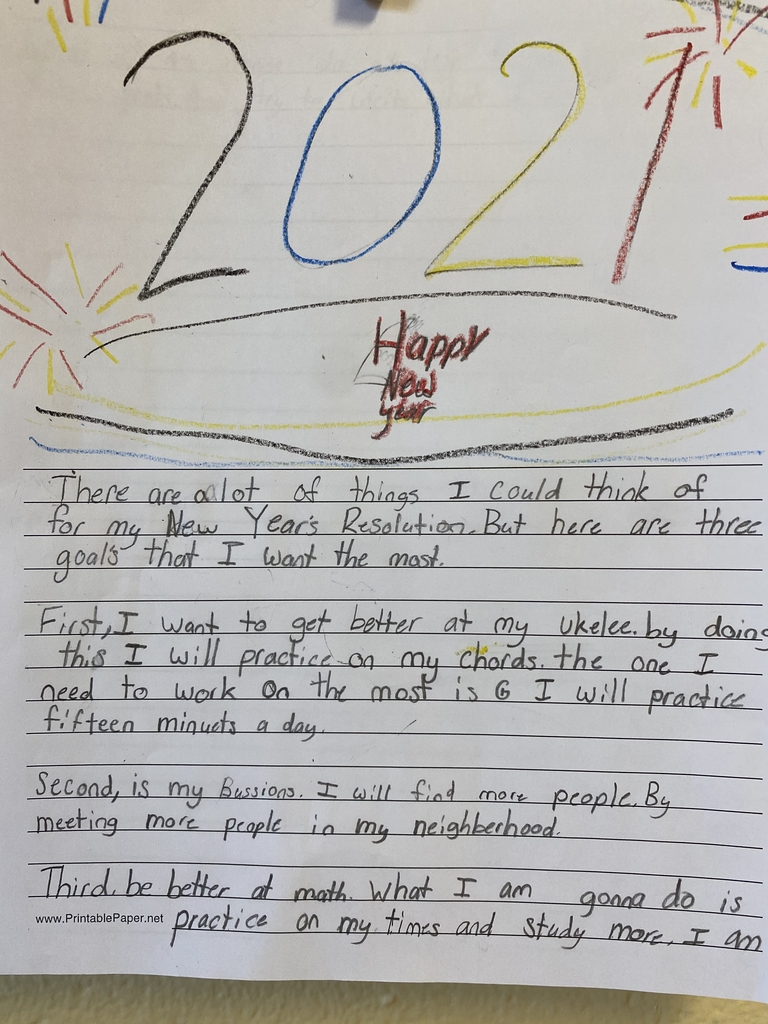 2021
Happy
New
year
There are a lot of things I could think of
for my New Year's Resolution. But here are three
goals that I want the most.
First, I want to get better at my ukelee. by doing
this I will practice on my chords. the one I
need to work on the most is G I will practice
fifteen minuets a day.
Second, is my Bussions. I will find more people. By
meeting more people in my neighberhood.
Third. be better at math. What I am gonna do is
www.PrintablePaper.net practice on my times and study more. I am